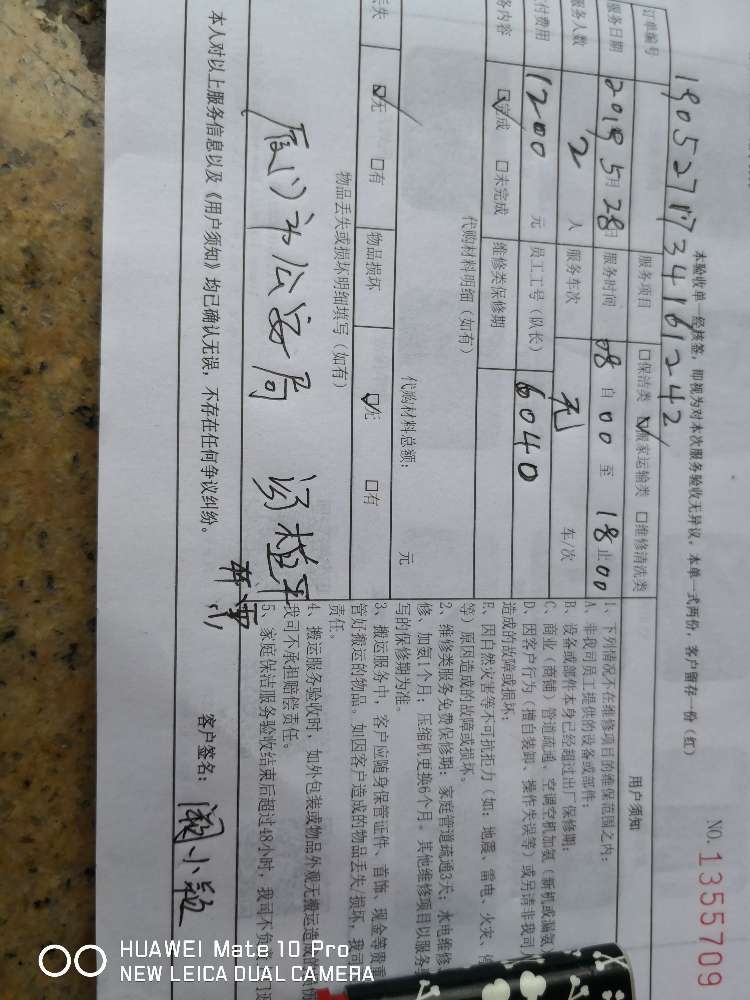 本验收单一经核签，即视为对本次服务验收无异议。本单一式两份，客户留存一份（红）
NO.1355709
订单编号 190527173416 1242
服务日期 2019 5月 28日 服务项目 □保洁类 ☑搬家运输类 □维修清洗类
服务时间 08 自 00 至 18 止 00
服务人数 2 人 服务车次 无 车/次
付费用 1200 元 员工工号（队长） 6040
务内容 ☑完成 □未完成 维修类保修期
代购材料明细（如有）
代购材料总额： 元
丢失 ☑无 □有 物品损坏 ☑无 □有
物品丢失或损坏明细填写（如有）
厦门市公安局
本人对以上服务信息以及《用户须知》均已确认无误，不存在任何争议纠纷。
客户签名： 阙小颖
用户须知
1、下列情况不在维修项目的维保范围之内：
A、非我司员工提供的设备或部件；
B、设备或部件本身已经超过出厂保修期；
C、商业（商铺）管道疏通、空调空机加氨（新机或漏氨
D、因客户行为（擅自装卸、操作失误等）或另请非我司人
造成的故障或损坏；
E、因自然灾害等不可抗拒力（如：地震、雷电、火灾、
等）原因造成的故障或损坏。
2、维修类服务免费保修期：家庭管道疏通3天；水电维修
修、加氨1个月；压缩机更换6个月。其他维修项目以服务
写的保修期为准。
3、搬运服务中，客户应随身保管证件、首饰、现金等贵重
管好搬运的物品。如因客户造成的物品丢失/损坏，我司
责任。
4、搬运服务验收时，如外包装或物品外观无搬运造成
我司不承担赔偿责任。
5、家庭保洁服务验收结束后超过48小时，我司不负
HUAWEI Mate 10 Pro
NEW LEICA DUAL CAMERA